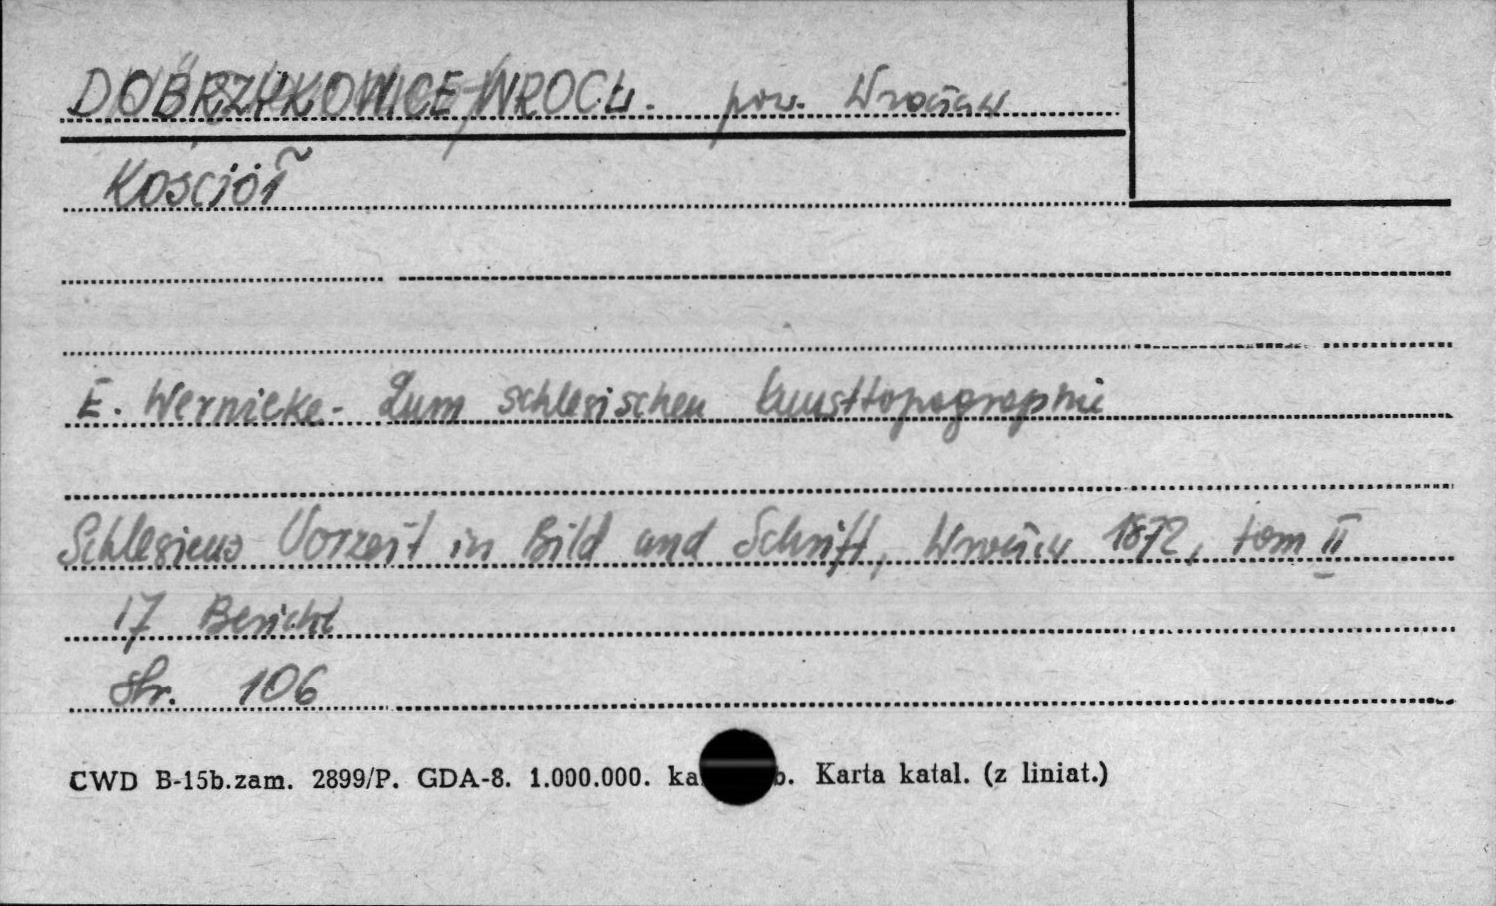 DOBRZYKOWICE WROCŁ. pow. Wrocław
KOŚCIÓŁ
E. Wernicke - Zum schlesischen Kunsttopographie
Schlesiens Vorzeit in Bild und Schrift, Wrocław 1872, tom II
17 Bericht
str. 106
CWD B-15b.zam. 2899/P. GDA-8. 1.000.000. Karta katal. (z liniat.)